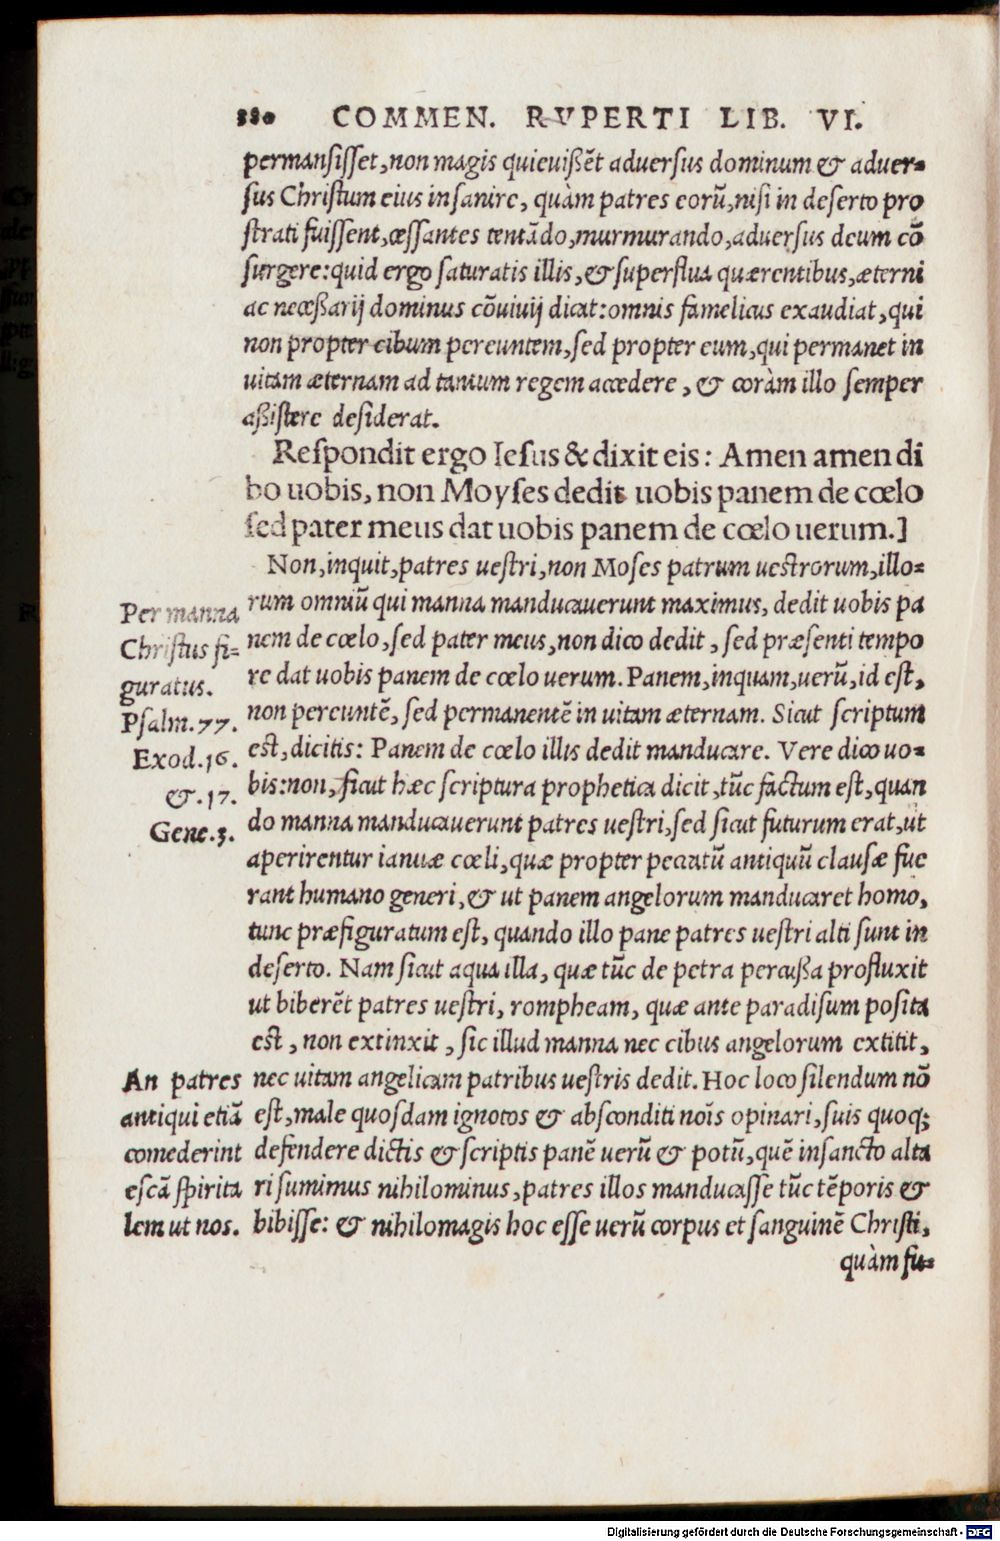 380 COMMEN. RVPERTI LIB. VI.
permansisset, non magis quieuißẽt aduersus dominum & aduer=
sus Christum eius insanire, quàm patres eorũ, nisi in deserto pro
strati fuissent, cessantes tentãdo, murmurando, aduersus deum cõ
surgere: quid ergo saturatis illis, & superflua quærentibus, æterni
ac neceßarij dominus cõuiuij dicat: omnis famelicus exaudiat, qui
non propter cibum pereuntem, sed propter eum, qui permanet in
uitam æternam ad tantum regem accedere, & coràm illo semper
aßistere desiderat.
Respondit ergo Iesus & dixit eis: Amen amen di
bo uobis, non Moyses dedit uobis panem de cœlo
sed pater meus dat uobis panem de cœlo uerum.]
Non, inquit, patres uestri, non Moses patrum uestrorum, illo=
rum omniũ qui manna manducauerunt maximus, dedit uobis pa
nem de cœlo, sed pater meus, non dico dedit, sed præsenti tempo
re dat uobis panem de cœlo uerum. Panem, inquam, uerũ, id est,
non pereuntẽ, sed permanentẽ in uitam æternam. Sicut scriptum
est, dicitis: Panem de cœlo illis dedit manducare. Vere dico uo=
bis: non, sicut hæc scriptura prophetica dicit, tũc factum est, quan
do manna manducauerunt patres uestri, sed sicut futurum erat, ut
aperirentur ianuæ cœli, quæ propter peccatũ antiquũ clausæ fue
rant humano generi, & ut panem angelorum manducaret homo,
tunc præfiguratum est, quando illo pane patres uestri alti sunt in
deserto. Nam sicut aqua illa, quæ tũc de petra percußa profluxit
ut biberẽt patres uestri, rompheam, quæ ante paradisum posita
est, non extinxit, sic illud manna nec cibus angelorum extitit,
nec uitam angelicam patribus uestris dedit. Hoc loco silendum nõ
est, male quosdam ignotos & absconditi noĩs opinari, suis quoq;
defendere dictis & scriptis panẽ uerũ & potũ, quẽ in sancto alta
ri sumimus nihilominus, patres illos manducasse tũc tẽporis &
bibisse: & nihilomagis hoc esse uerũ corpus et sanguinẽ Christi,
quàm fu=
Per manna
Christus fi=
guratus.
Psalm.77.
Exod.16.
&.17.
Gene.3.
An patres
antiqui etiã
comederint
escã spirita
lem ut nos.
Digitalisierung gefördert durch die Deutsche Forschungsgemeinschaft - DFG